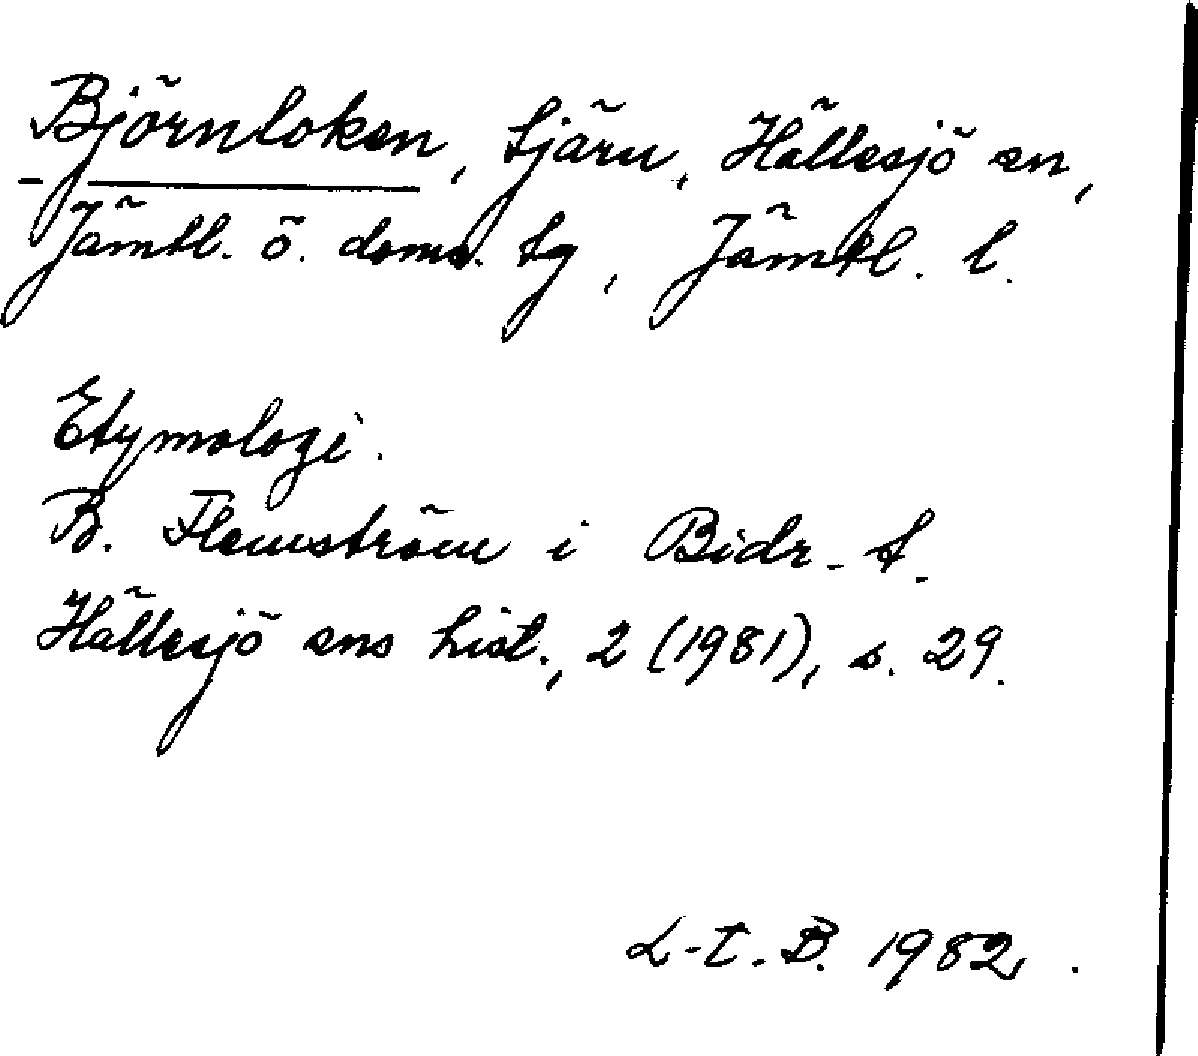 Björnloken, tjärn, Hällesjö sn,
Jämtl. ö. doms. tg, Jämtl. l.
Etymologi.
B. Flemström i Bidr. t.
Hällesjö sns hist., 2 (1981), s. 29.
L-t. B. 1982.